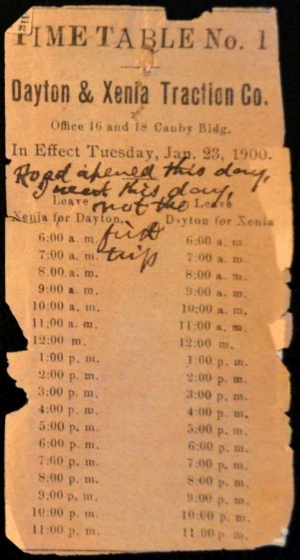 TIME TABLE No. 1
Dayton & Xenia Traction Co.
Office 16 and 18 Canby Bldg.
In Effect Tuesday, Jan. 23, 1900.
Road opened this day,
I went this day,
not the
first
trip
Leave Leave
Xenia for Dayton. Dayton for Xenia
6:00 a. m. 6:00 a. m.
7:00 a. m. 7:00 a. m.
8:00 a. m. 8:00 a. m.
9:00 a. m. 9:00 a. m.
10:00 a. m. 10:00 a. m.
11:00 a. m. 11:00 a. m.
12:00 m. 12:00 m.
1:00 p. m. 1:00 p. m.
2:00 p. m. 2:00 p. m.
3:00 p. m. 3:00 p. m.
4:00 p. m. 4:00 p. m.
5:00 p. m. 5:00 p. m.
6:00 p. m. 6:00 p. m.
7:00 p. m. 7:00 p. m.
8:00 p. m. 8:00 p. m.
9:00 p. m. 9:00 p. m.
10:00 p. m. 10:00 p. m.
11:00 p. m. 11:00 p. m.